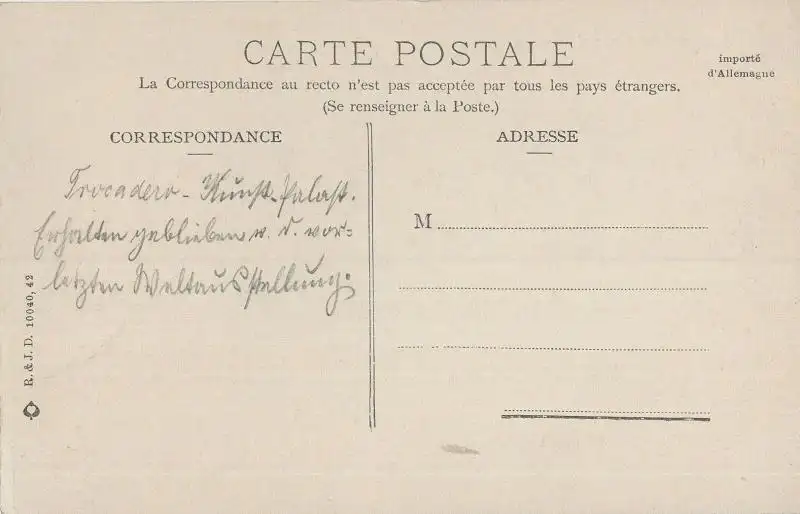 CARTE POSTALE
importé
d'Allemagne
La Correspondance au recto n'est pas acceptée par tous les pays étrangers.
(Se renseigner à la Poste.)
CORRESPONDANCE
ADRESSE
Trocadero - Kunst-Palast.
Erhalten geblieben v. d. vor-
letzten Weltausstellung.
M
R. & J. D. 10040, 42